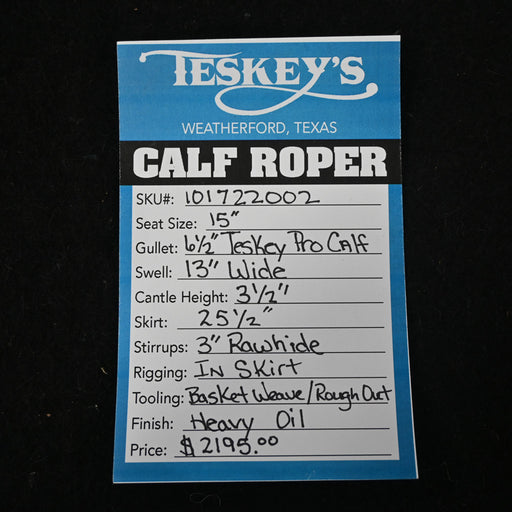 TESKEY'S
WEATHERFORD, TEXAS
CALF ROPER
SKU#: 101722002
Seat Size: 15"
Gullet: 6½" Teskey Pro Calf
Swell: 13" Wide
Cantle Height: 3½"
Skirt: 25½"
Stirrups: 3" Rawhide
Rigging: In Skirt
Tooling: Basket Weave/Rough Out
Finish: Heavy Oil
Price: $2195.00